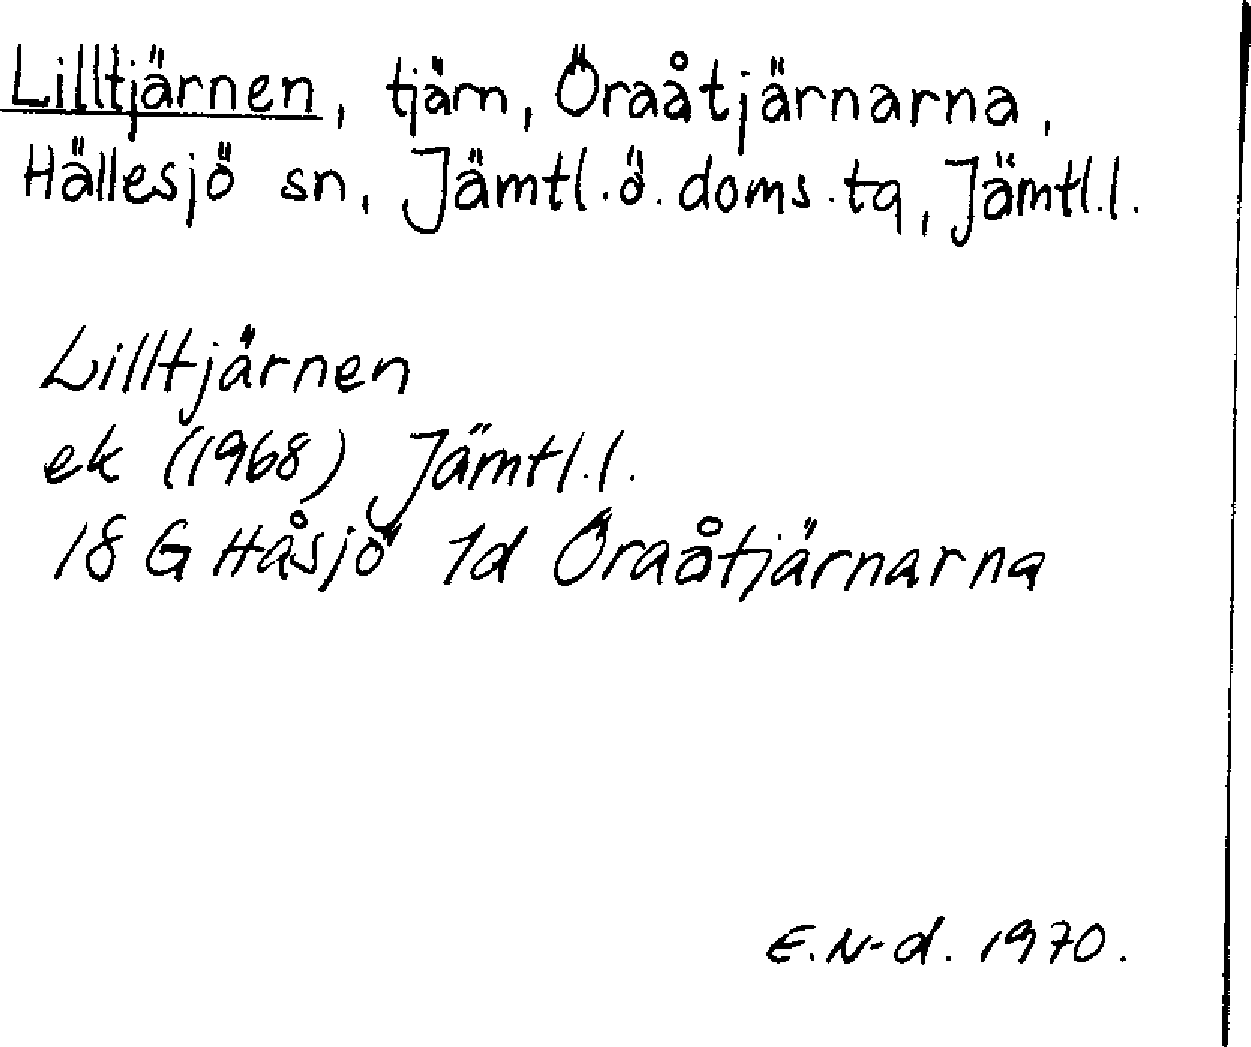 Lilltjärnen, tjärn, Öraåtjärnarna,
Hällesjö sn, Jämtl.ö.doms.tq, Jämtl.l.
Lilltjärnen
ek (1968) Jämtl.l.
18 G Håsjö 1d Öraåtjärnarna
E.N-d. 1970.